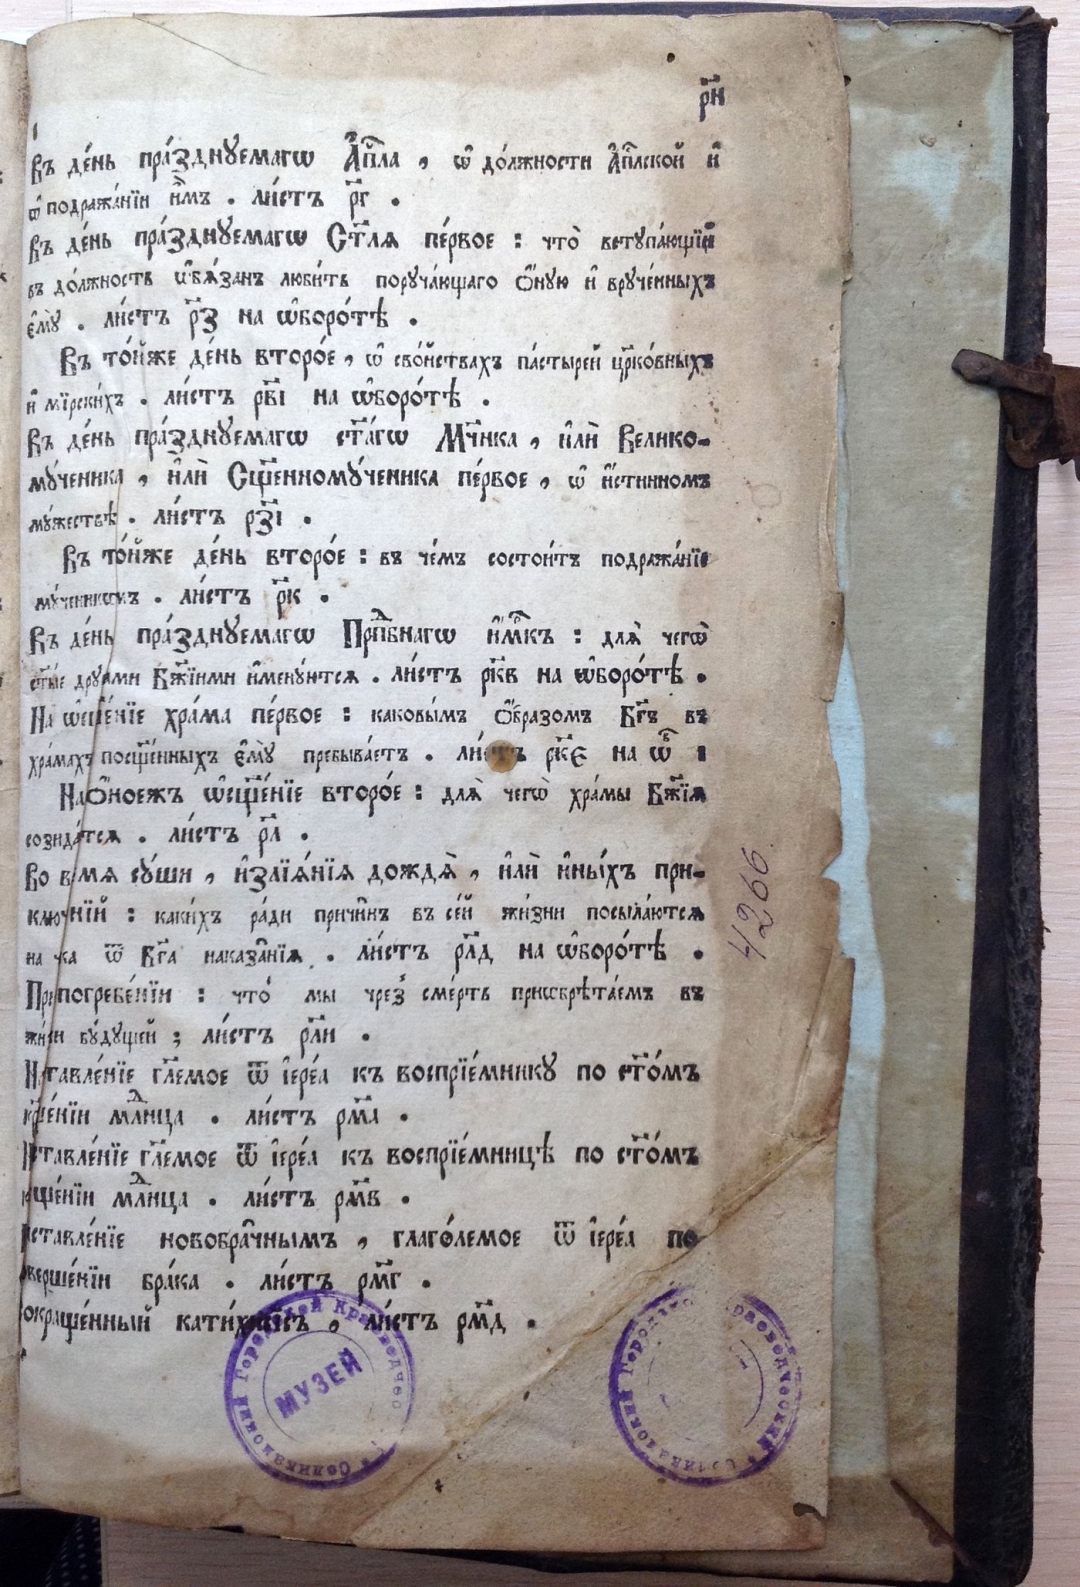 р҃н
Въ де́нь пра́зднꙋемагѡ А҆пⷭ҇ла , ѡ҆ до́лжности а҆пⷭ҇лской и҆
ѡ҆ подража́нїи и҆̀мъ . ли́стъ р҃г .
Въ де́нь пра́зднꙋемагѡ Ст҃лѧ пе́рвое : что̀ вступа́ющїй
въ до́лжность ѡ҆бѧ́занъ люби́ть поруча́ющаго ѻ҆́ную и҆ вруче́нныхъ
є҆мꙋ̀ . ли́стъ р҃з на ѡ҆боро́тѣ .
Въ то́йже де́нь второ́е , ѡ҆ сво́йствахъ па́стырей цр҃ко́вныхъ
и҆ мїрски́хъ . ли́стъ рв҃і на ѡ҆боро́тѣ .
Въ де́нь пра́зднꙋемагѡ ст҃а́гѡ Мч҃нка , и҆лѝ Велико-
мꙋ́ченика , и҆лѝ Сщ҃енномꙋ́ченика пе́рвое , ѡ҆ и҆́стинномъ
мꙋ́жествѣ . ли́стъ рз҃і .
Въ то́йже де́нь второ́е : въ че́мъ состои́тъ подража́нїе
мꙋ́ченикѡмъ . ли́стъ р҃к .
Въ де́нь пра́зднꙋемагѡ Прпⷣбнагѡ и҆́м҃къ : длѧ̀ чегѡ̀
ст҃ы́е дрꙋга́ми Бж҃їими и҆менꙋ́ютсѧ . ли́стъ рк҃в на ѡ҆боро́тѣ .
На ѡ҆сщ҃е́нїе хра́ма пе́рвое : каковы́мъ ѻ҆́бразомъ Бг҃ъ въ
хра́махъ посщ҃е́нныхъ є҆мꙋ̀ пребыва́етъ . ли́стъ рк҃є на ѡ҆б :
На ѻ҆́ноежъ ѡ҆сщ҃е́нїе второ́е : длѧ̀ чегѡ̀ хра́мы Бж҃їѧ
созида́ютсѧ . ли́стъ р҃л .
Во времѧ сꙋ́ши , и҆злїѧ́нїѧ дождѧ̀ , и҆лѝ и҆ны́хъ при-
ключе́нїй : каки́хъ ра́ди причи̑нъ въ се́й жи́зни посыла́ютсѧ
на ѿ Бг҃а наказа̑нїѧ . ли́стъ рл҃д на ѡ҆боро́тѣ .
При погребе́нїи : что̀ мы чрез̾ сме́рть приѡбрѣта́емъ въ
жи́зни бꙋ́дꙋщей ; ли́стъ рл҃и .
Наставле́нїе гл҃емое ѿ і҆ере́а къ воспрїе́мникꙋ по ст҃о́мъ
крⷳ҇е́нїи млⷣнца . ли́стъ рм҃а .
Наставле́нїе гл҃емое ѿ і҆ере́а къ воспрїе́мницѣ по ст҃о́мъ
крⷳ҇е́нїи млⷣнца . ли́стъ рм҃в .
Наставле́нїе новобра̑чнымъ , глаго́лемое ѿ і҆ере́а по
соверше́нїи бра́ка . ли́стъ рм҃г .
Сокраще́нный катихи́зїсъ , ли́стъ рм҃д .
4266.
Соликамский Городской Краеведческий
МУЗЕЙ
Соликамский Городской Краеведческий